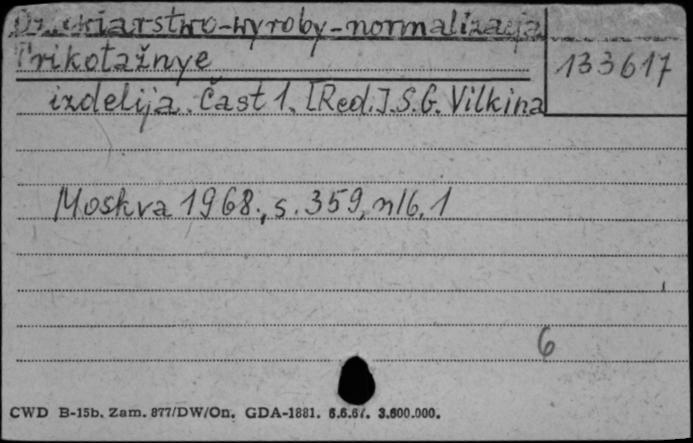 Dziewiarstwo-wyroby-normalizacja
133617
Trikotažnye
izdelija. Čast 1. [Red.] S.G. Vilkina
Moskva 1968., s. 359, nlb. 1
6
CWD B-15b. Zam. 877/DW/On. GDA-1881. 6.6.67. 3.600.000.